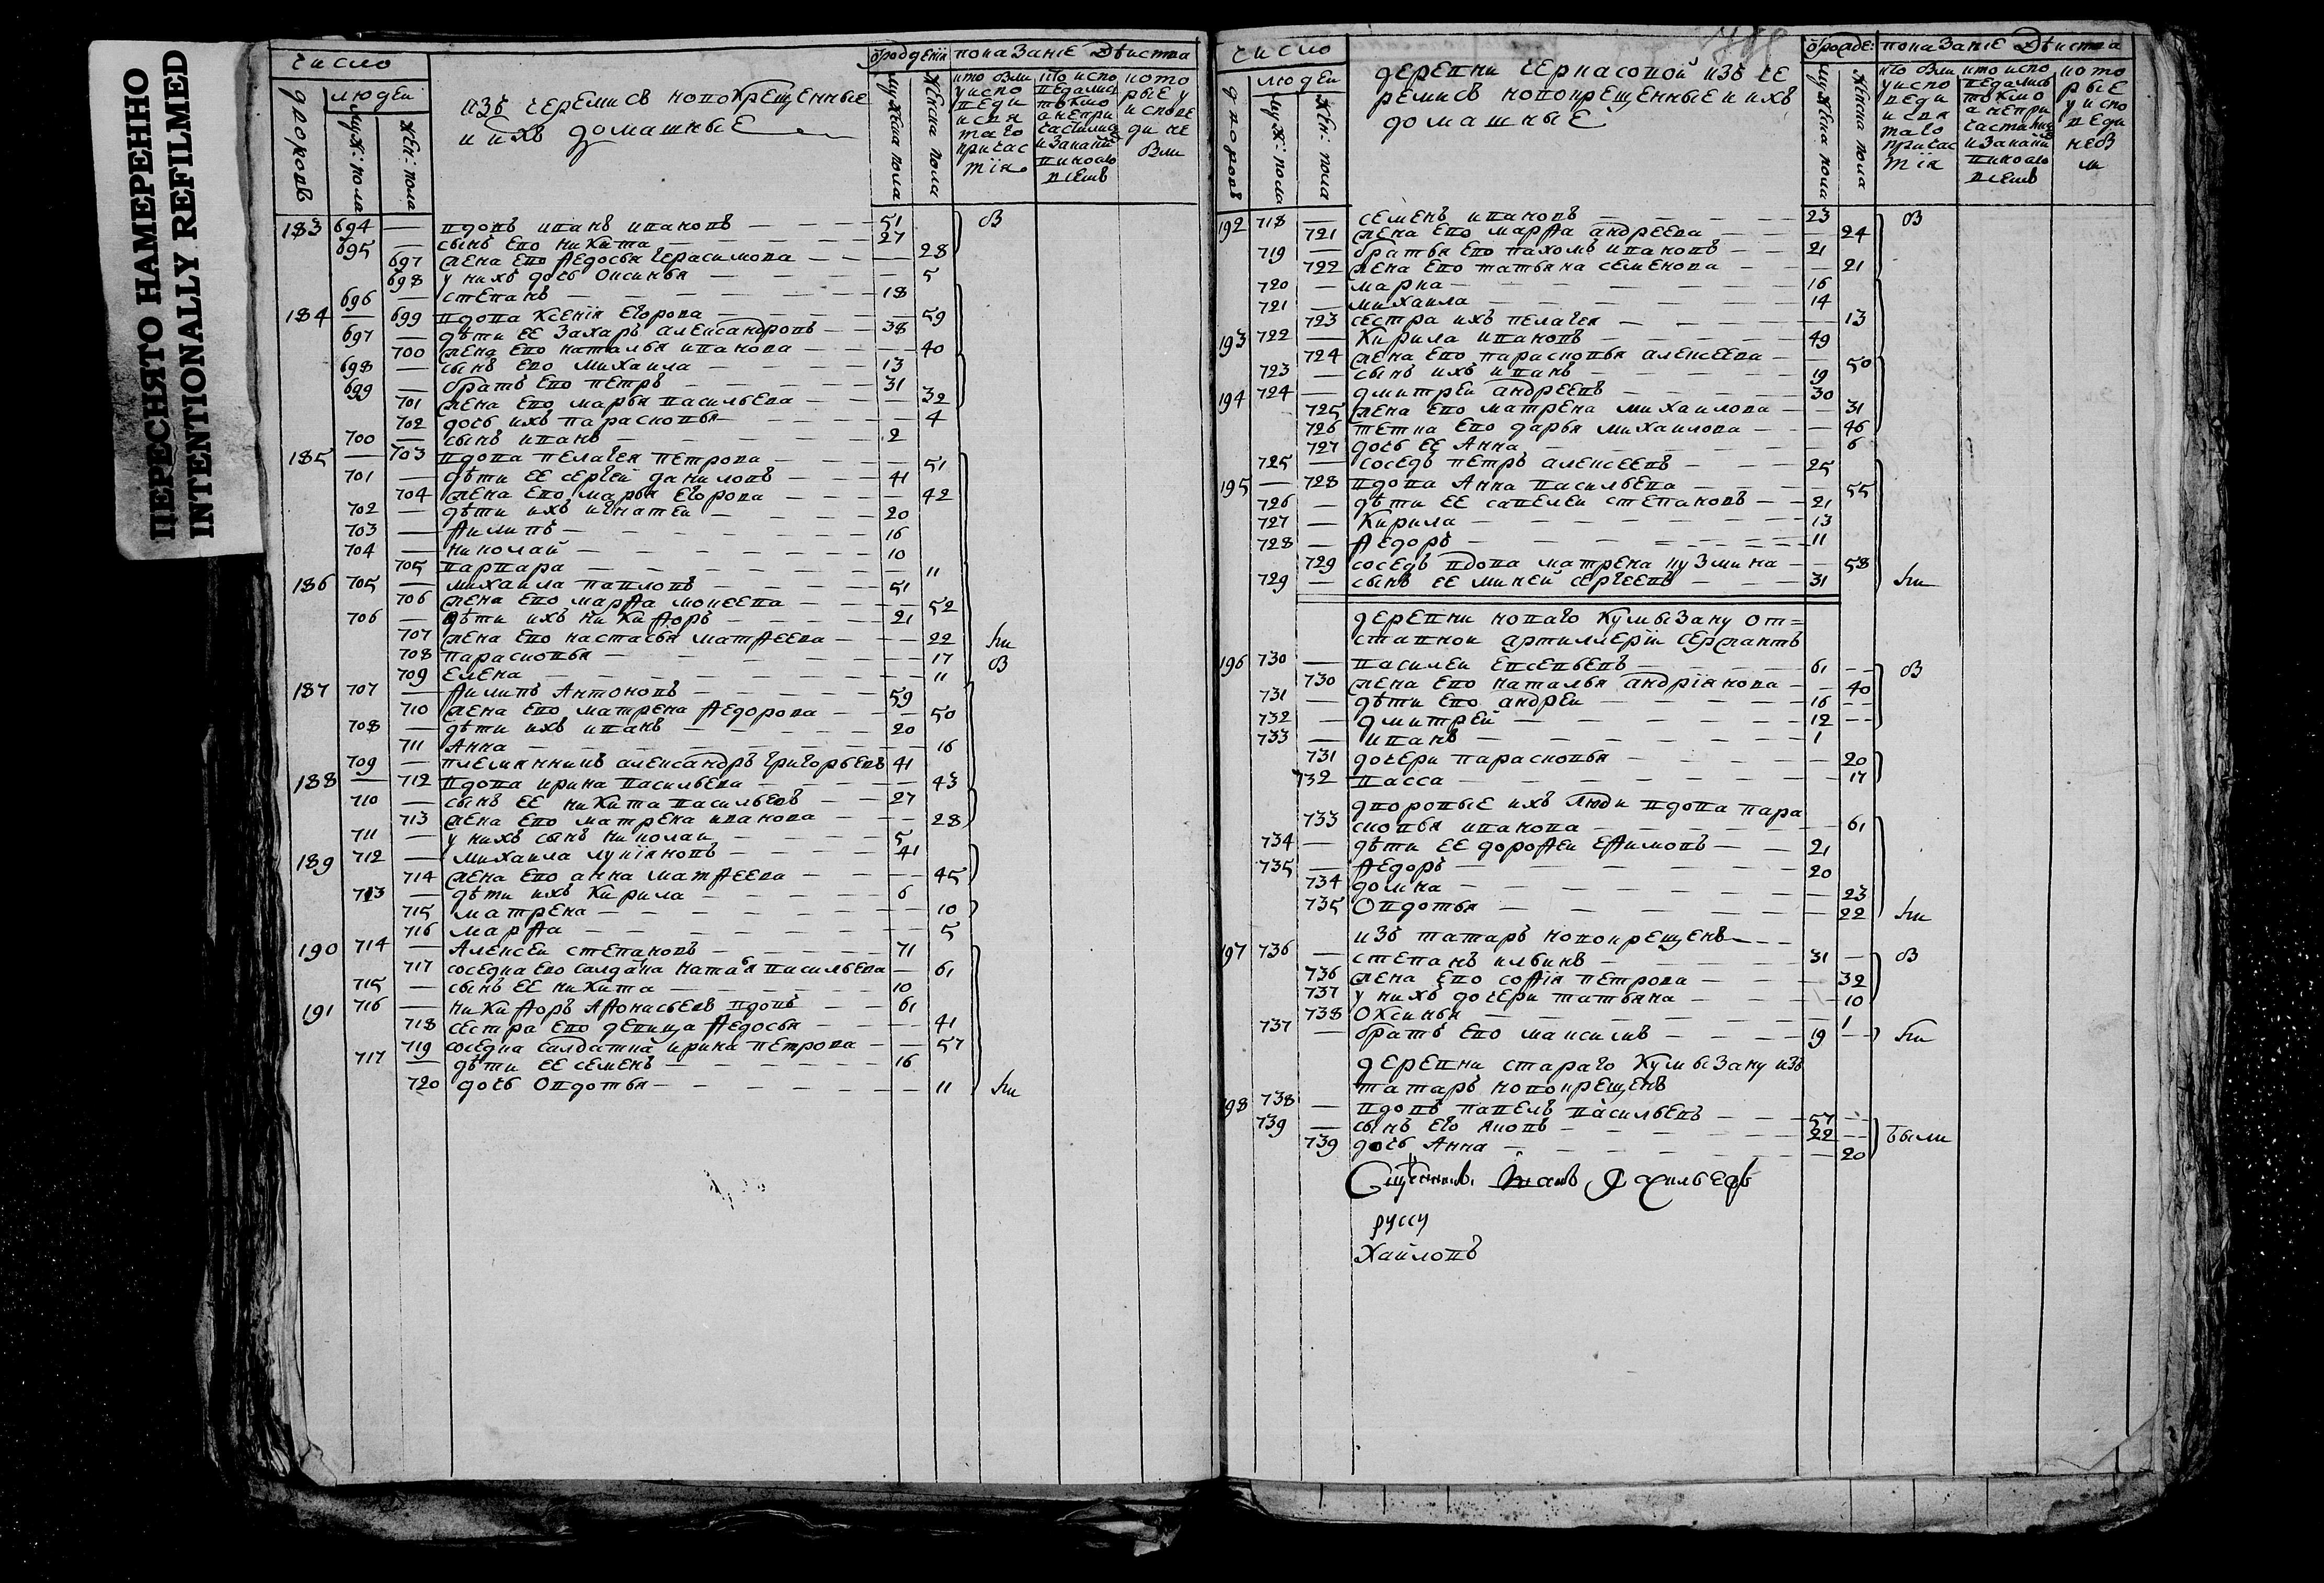 ПЕРЕСНЯТО НАМЕРЕННО
INTENTIONALLY REFILMED
число
дворовъ
людей
муж: пола
жен: пола
изъ черемисъ новокрещенные
и ихъ домашные
показание действа
мужеска пола
женска пола
183 694 — вдовъ иванъ ивановъ — — — 51 } б
695 — сынъ ево никита — — — 27
697 жена ево Федосья герасимова — — — 28
698 у нихъ дочь Оксинья — — — 5
696 — степанъ — — — 18
184 — 699 вдова Ксенiя Егорова — — — 59
697 — дѣти ее Захаръ александровъ — — 38
700 жена ево наталья иванова — — — 40
698 — сынъ ево михаила — — — 13
699 — братъ ево петръ — — — 31
701 жена ево марья васильева — — — 32
702 дочь ихъ парасковья — — — 4
700 — сынъ иванъ — — — 2
185 — 703 вдова пелагея петрова — — — 51
701 — дѣти ее сергей даниловъ — — — 41
704 жена ево марья Егорова — — — 42
702 — дѣти ихъ игнатей — — — 20
703 — Филипъ — — — 16
704 — николай — — — 10
705 варвара — — — 11
186 705 — михаила павловъ — — — 51
706 жена ево марфа моисеева — — — 52
706 — дѣти ихъ никифоръ — — — 21
707 жена ево настасья матфеева — — — 22 ли
708 парасковья — — — 17 б
709 Елена — — — 11
187 707 — Филипъ Антоновъ — — — 59
710 жена ево матрена Федорова — — — 50
708 — дѣти ихъ иванъ — — — 20
711 Анна — — — 16
709 — племянникъ александръ григорьевъ 41
188 — 712 вдова ирина васильева — — — 43
710 — сынъ ее никита васильевъ — — 27
713 жена ево матрена иванова — — — 28
711 — у нихъ сынъ николаи — — — 5
189 712 — михаила лукiяновъ — — — 41
714 жена ево анна матфеева — — — 45
713 — дѣти ихъ Кирила — — — 6
715 матрена — — — 10
716 марфа — — — 5
190 714 — Алексеи степановъ — — — 71
717 соседка ево салдатка наталья васильева — 61
715 — сынъ ее никита — — — 10
191 716 — никифоръ Афонасьевъ вдовъ — — 61
718 сестра ево девица Федосья — — — 41
719 соседка салдатка ирина петрова — — 57
717 — дѣти ее семенъ — — — 16
720 дочь Овдотья — — — 11 ли
число
дворовъ
людей
муж: пола
жен: пола
деревни черкасовой изъ че
ремисъ новокрещенные и ихъ
домашные
показание действа
мужеска пола
женска пола
192 718 — семенъ ивановъ — — — 23 } б
721 жена ево марфа андреева — — — 24
719 — братья ево пахомъ ивановъ — — 21
722 жена ево татьяна семенова — — — 21
720 — марка — — — 16
721 — михаила — — — 14
723 сестра ихъ пелагея — — — 13
193 722 — Кирила ивановъ — — — 49
724 жена ево парасковья алексеева — — 50
723 — сынъ ихъ иванъ — — — 19
194 724 — дмитреи андреевъ — — — 30
725 жена ево матрена михаилова — — 31
726 тетка ево дарья михаилова — — — 46
727 дочь ее Анна — — — 6
725 — соседъ петръ алексеевъ — — — 25
195 — 728 вдова Анна васильева — — — 55
726 — дѣти ее савелеи степановъ — — 21
727 — Кирила — — — 13
728 — Федоръ — — — 11
729 соседъ вдова матрена кузмина — — 58
729 — сынъ ее микей сергеевъ — — — 31 ли
деревни новаго Кулбызану от=
ставнои артиллерiи сержантъ
196 730 — василеи евсевьевъ — — — 61 — б
730 жена ево наталья андрiянова — — 40
731 — дѣти ево андреи — — — 16 —
732 — дмитрей — — — 12 —
733 — иванъ — — — 1
731 дочери парасковья — — — 20
732 васса — — — 17
дворовые ихъ люди вдова пара
733 сковья иванова — — — 61
734 — дѣти ее дорофеи ефимовъ — — 21
735 — Федоръ — — — 20
734 домна — — — 23
735 Овдотья — — — 22 ли
изъ татаръ новокрещенъ
197 736 — степанъ ильинъ — — — 31 — б
736 жена ево софiя петрова — — — 32
737 у нихъ дочери татьяна — — — 10
738 Оксинья — — — 1
737 — братъ ево максимъ — — — 19 — ли
деревни стараго Кулбызану изъ
татаръ новокрещенъ
198 738 — вдовъ павелъ васильевъ — — — 57 —
739 — сынъ его яковъ — — — 22 — были
739 дочь Анна — — — 20
Иванъ
руссу
Хаиловъ